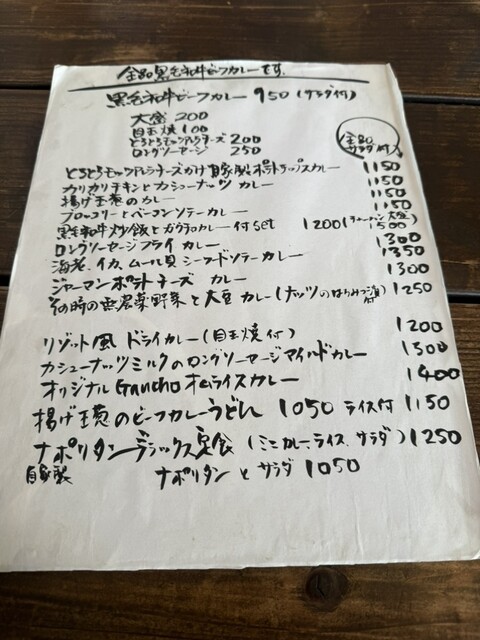 全品黒毛和牛ビーフカレーです。
黒毛和牛ビーフカレー 950 (サラダ付)
大盛 200
目玉焼 100
とろとろモッツァレラチーズ 200
ロングソーセージ 250
全品サラダ付
とろとろモッツァレラチーズかけ自家製ポテトチップスカレー 1150
カリカリチキンとカシューナッツ カレー 1150
揚げ玉葱のカレー 1150
ブロッコリーとベーコンソテーカレー 1150
黒毛和牛炒飯とガウチョカレー付set 1200 (チャーハン大盛 1500
ロングソーセージフライ カレー 1300
海老、イカ、ムール貝シーフードソテーカレー 1350
ジャーマンポテトチーズ カレー 1300
その時の無農薬野菜と大豆カレー (ナッツのはちみつ漬付) 1250
リゾット風 ドライカレー (目玉焼付) 1200
カシューナッツミルクのロングソーセージマイルドカレー 1300
オリジナルGauchoオムライスカレー 1400
揚げ玉葱のビーフカレーうどん 1050 ライス付 1150
ナポリタンデラックス定食 (ミニカレー、ライス、サラダ) 1250
自家製 ナポリタンとサラダ 1050